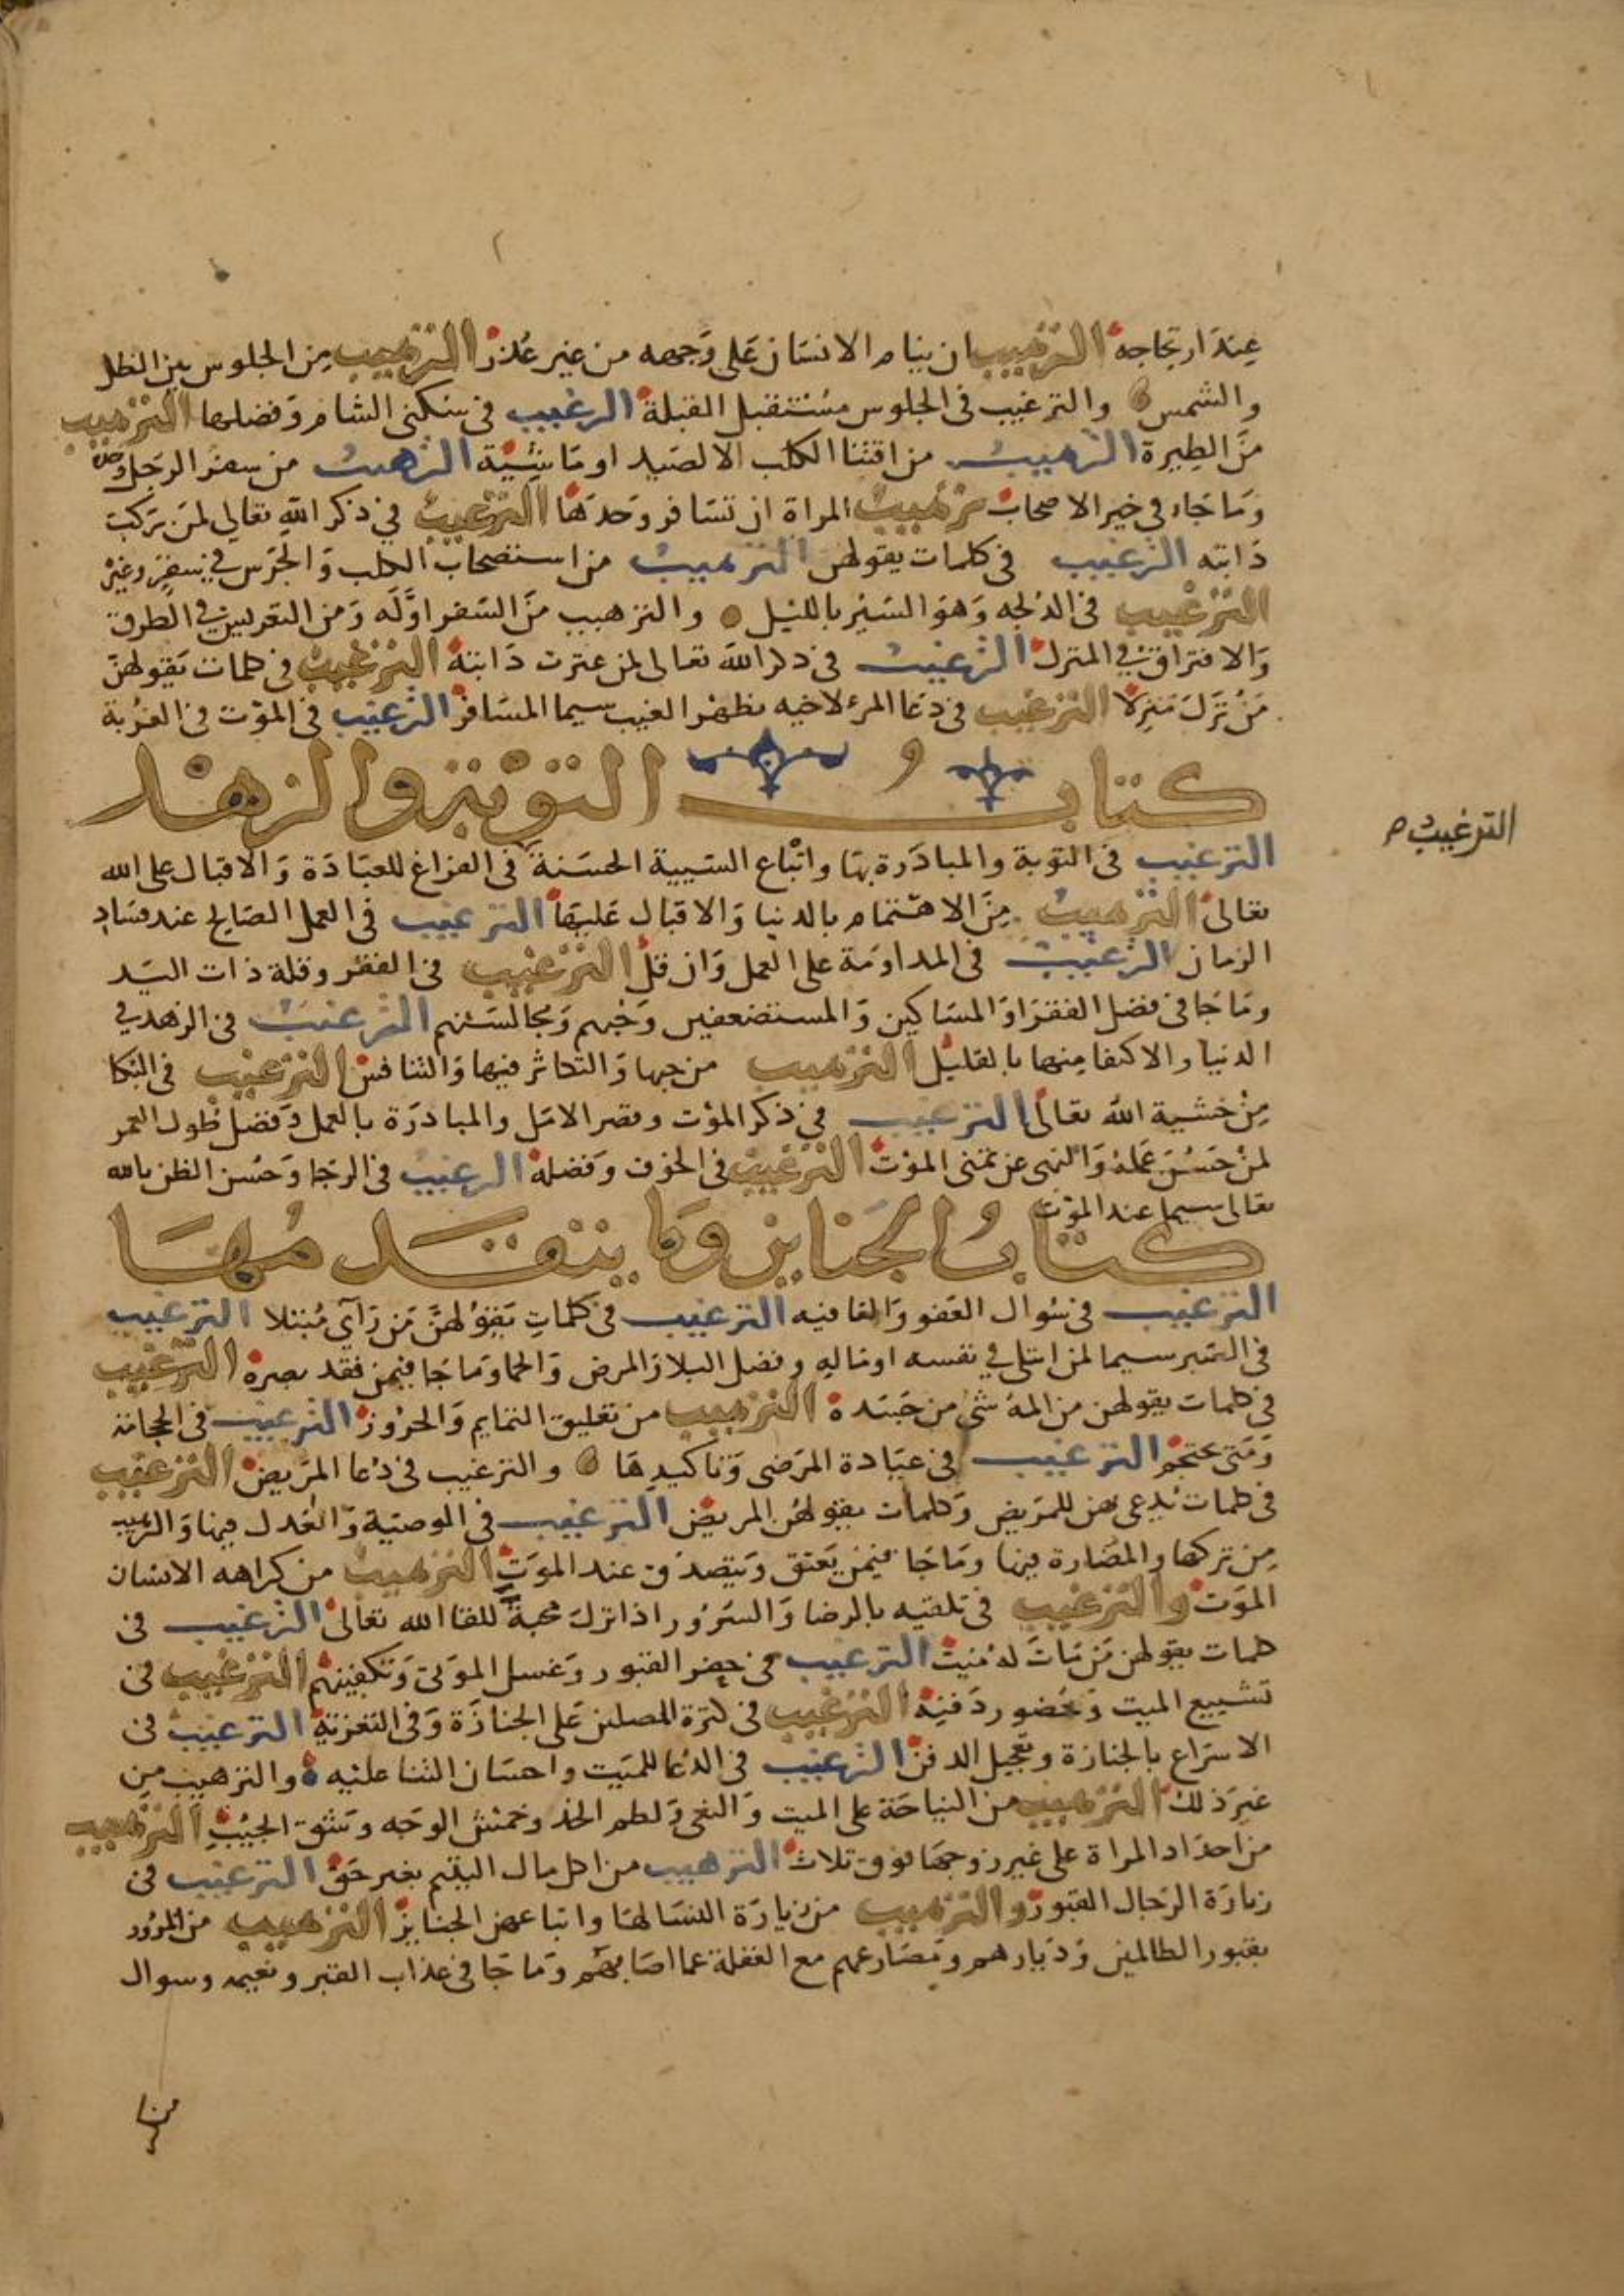 عند ارتجاجه الترهيب ان ينام الانسان على وجهه من غير عذر الترهيب من الجلوس بين الظل
والشمس والترغيب في الجلوس مستقبل القبلة الرغيب في سكنى الشام وفضلها الترهيب
من الطيرة الترهيب من اقتنا الكلب الا لصيد او ماشية الترهيب من سفر الرجل وحده
وما جاء في خير الاصحاب ترهيب المراة ان تسافر وحدها الترغيب في ذكر الله تعالى لمن يركب
دابته الترغيب في كلمات يقولهن الترهيب من استصحاب الكلب والجرس في سفر وغيره
الترغيب في الدلجه وهو السير بالليل والترهيب من السفر اوله ومن التعريس في الطرق
والافتراق في المنزل الترغيب في ذكر الله تعالى لمن عثرت دابته الترغيب في كلمات يقولهن
من نزل منزلا الترغيب في دعا المرء لاخيه بظهر الغيب سيما المسافر الترغيب في الموت في الغربة
كتاب التوبة والزهد
الترغيب م
الترغيب في التوبة والمبادرة بها واتباع السيية الحسنة في الفراغ للعبادة والاقبال على الله
تعالى الترهيب من الاهتمام بالدنيا والاقبال عليها الترغيب في العمل الصالح عند فساد
الزمان الترغيب في المداومة على العمل وان قل الترغيب في الفقر وقلة ذات اليد
وما جا في فضل الفقرا والمساكين والمستضعفين وحبهم ومجالستهم الترغيب في الزهد في
الدنيا والاكتفا منها بالقليل الترهيب من حبها والتكاثر فيها والتنافس الترغيب في البكا
من خشية الله تعالى الترغيب في ذكر الموت وقصر الامل والمبادرة بالعمل وفضل طول العمر
لمن حسن عمله والنهى عن تمنى الموت الترغيب في الخوف وفضله الرغيب في الرجا وحسن الظن بالله
تعالى سيما عند الموت
كتاب الجنايز وما يتقدمها
الترغيب في سوال العفو والعافيه الترغيب في كلمات يقولهن من رآى مبتلا الترغيب
في الصبر سيما لمن ابتلى في نفسه او ماله وفضل البلا والمرض والحما وما جا فيمن فقد بصره الترغيب
في كلمات يقولهن من المه شى من جسده الترهيب من تعليق التمايم والحروز الترغيب في الحجامة
ومتى يحتجم الترغيب في عيادة المرضى وتاكيدها والترغيب في دعا المريض الترغيب
في كلمات يدعى بهن للمريض وكلمات يقولهن المريض الترغيب في الوصية والعدل فيها والترهيب
من تركها والمضارة فيها وما جا فيمن يعتق ويتصدق عند الموت الترهيب من كراهه الانسان
الموت والترغيب في تلقيه بالرضا والسرور اذا نزل محبة للقا الله تعالى الترغيب في
كلمات يقولهن من مات له ميت الترغيب في حفر القبور وغسل الموتى وتكفينهم الترغيب في
تشييع الميت وحضور دفنه الترغيب في كثرة المصلين على الجنازة وفي التعزية الترغيب في
الاسراع بالجنازة وتعجيل الدفن الترغيب في الدعا للميت واحسان الثنا عليه والترهيب من
غير ذلك الترهيب من النياحة على الميت والنعى ولطم الخد وخمش الوجه وشق الجيب الترهيب
من احداد المراة على غير زوجها فوق ثلاث الترهيب من اكل مال اليتيم بغير حق الترغيب في
زيارة الرجال القبور والترهيب من زيارة النسا لها واتباعهن الجنايز الترهيب من المرور
بقبور الظالمين وديارهم ومصارعهم مع الغفلة عما اصابهم وما جا في عذاب القبر ونعيمه وسوال